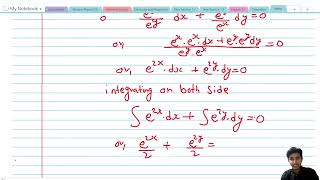 My Notebook
o e^x/e^y dx + e^y/e^x dy = 0
or, e^x.e^x dx + e^y.e^y dy / e^y.e^x = 0
or, e^2x.dx + e^2y.dy = 0
integrating on both side
∫e^2x.dx + ∫e^2y.dy = 0
or, e^2x/2 + e^2y/2 =